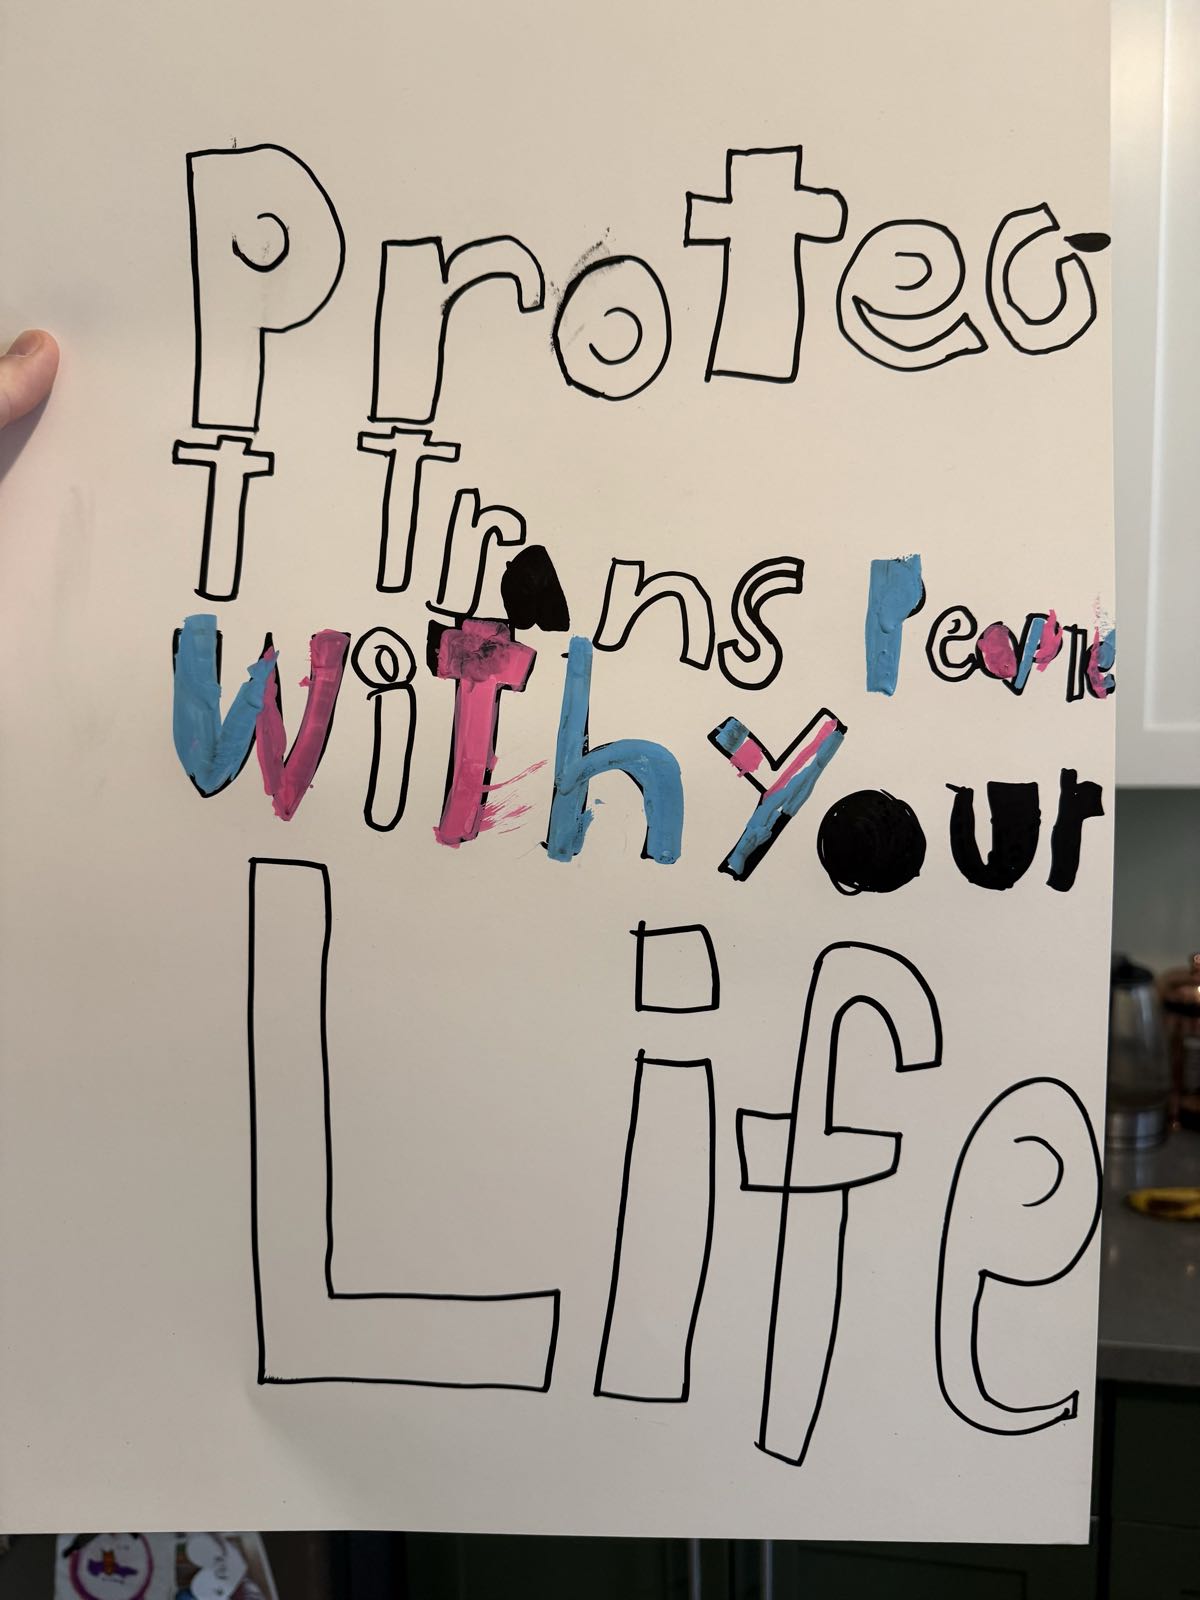 Protec
t Trans People
with Your
Life